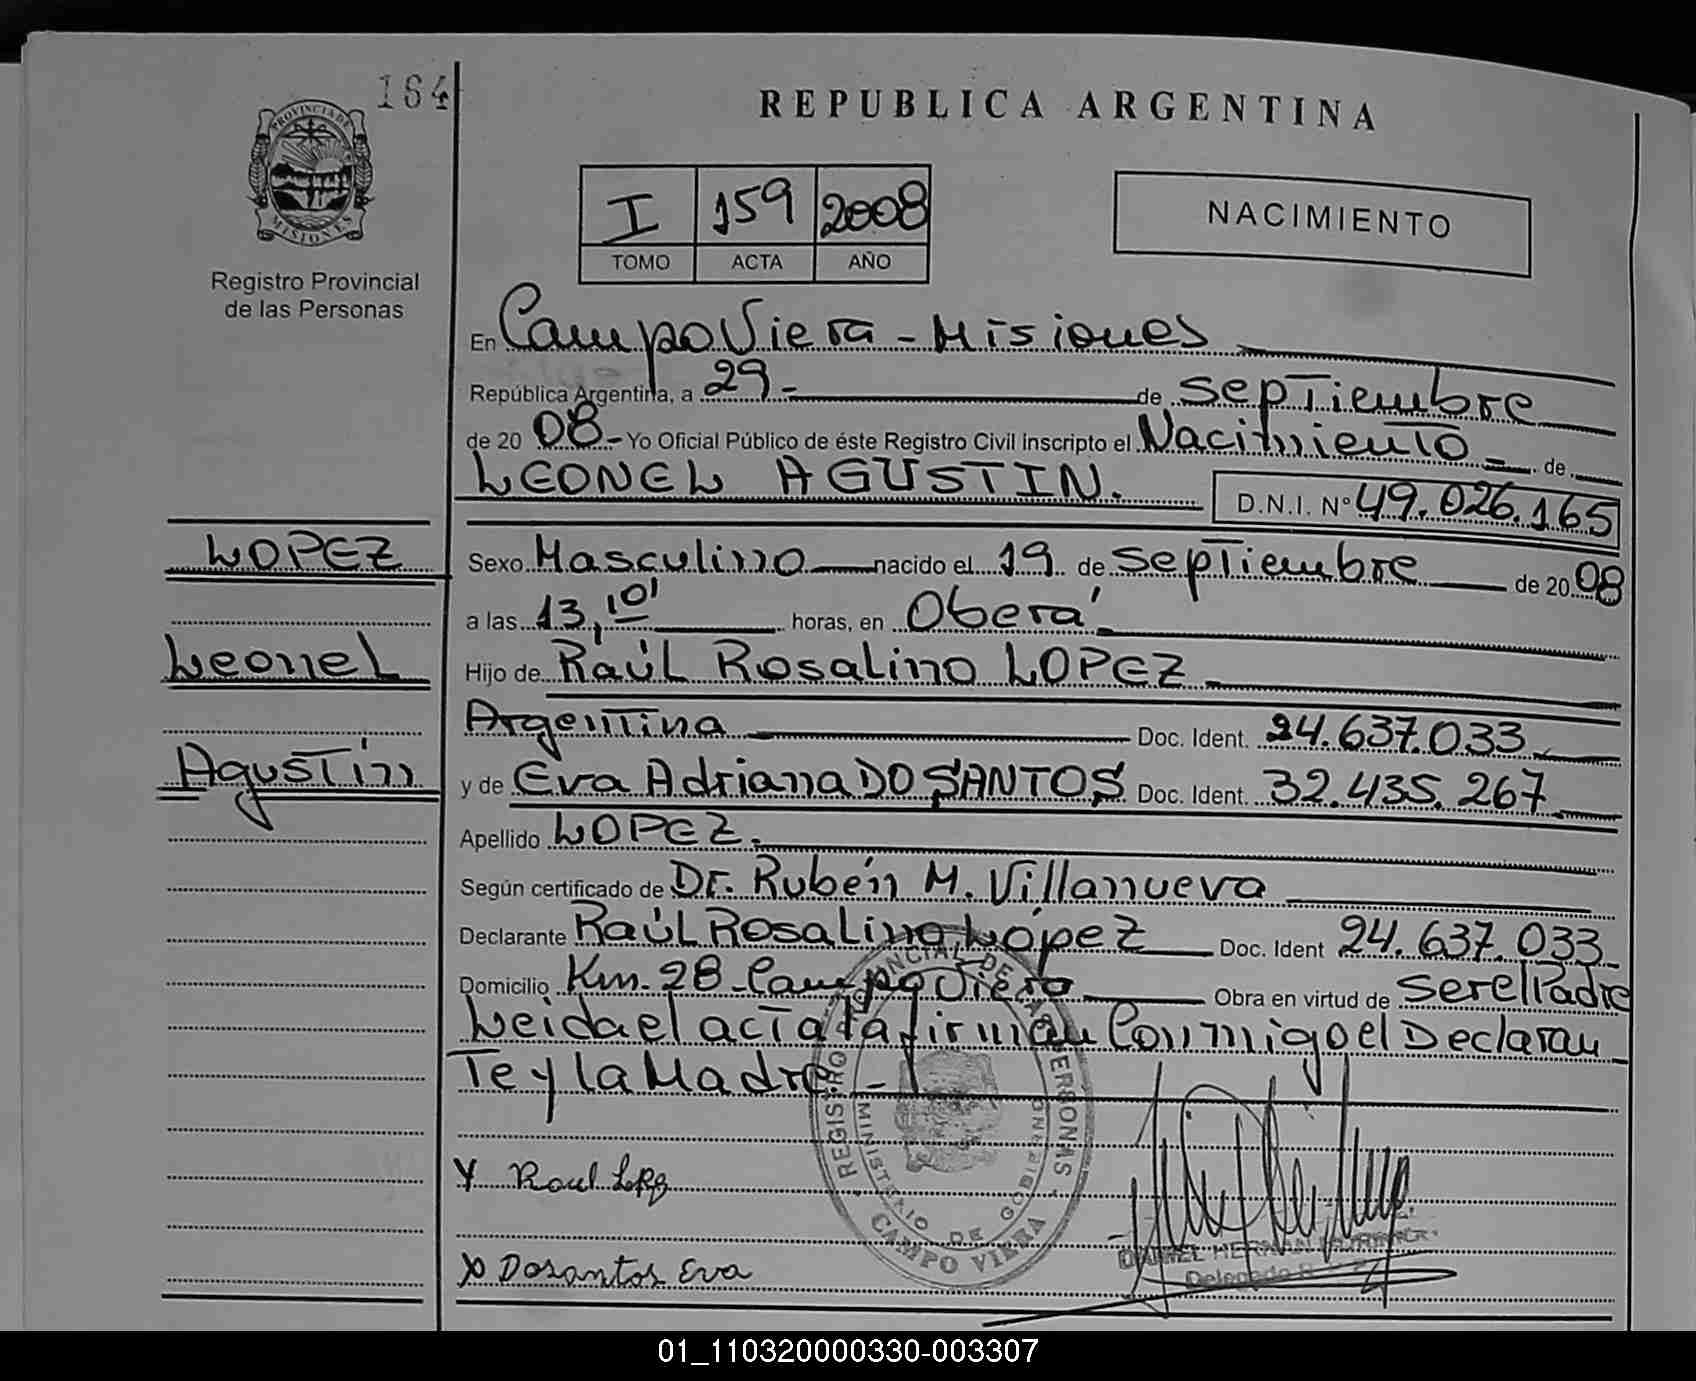 164
PROVINCIA DE
MISIONES
Registro Provincial
de las Personas
REPUBLICA ARGENTINA
I 159 2008
TOMO ACTA AÑO
NACIMIENTO
En Campo Viera - Misiones
República Argentina, a 29- de Septiembre
de 20 08- Yo Oficial Público de éste Registro Civil inscripto el Nacimiento de
LEONEL AGUSTIN.
D.N.I. Nº 49.026.165
LOPEZ
Leonel
Agustín
Sexo Masculino nacido el 19 de Septiembre de 20 08
a las 13,10' horas, en Oberá
Hijo de Raúl Rosalino LOPEZ
Argentina Doc. Ident. 24.637.033
y de Eva Adriana DO SANTOS Doc. Ident. 32.435.267
Apellido LOPEZ.
Según certificado de Dr. Rubén M. Villanueva
Declarante Raúl Rosalino López Doc. Ident 24.637.033
Domicilio Km. 28 - Campo Viera Obra en virtud de ser el Padre
Leida el acta la firman Conmigo el Declaran
Te y la Madre. -
REGISTRO PROVINCIAL DE LAS PERSONAS
MINISTERIO DE GOBIERNO
CAMPO VIERA
Raul Lopez
Dosantos Eva
DANIEL HERNAN
Delegado
01_110320000330-003307